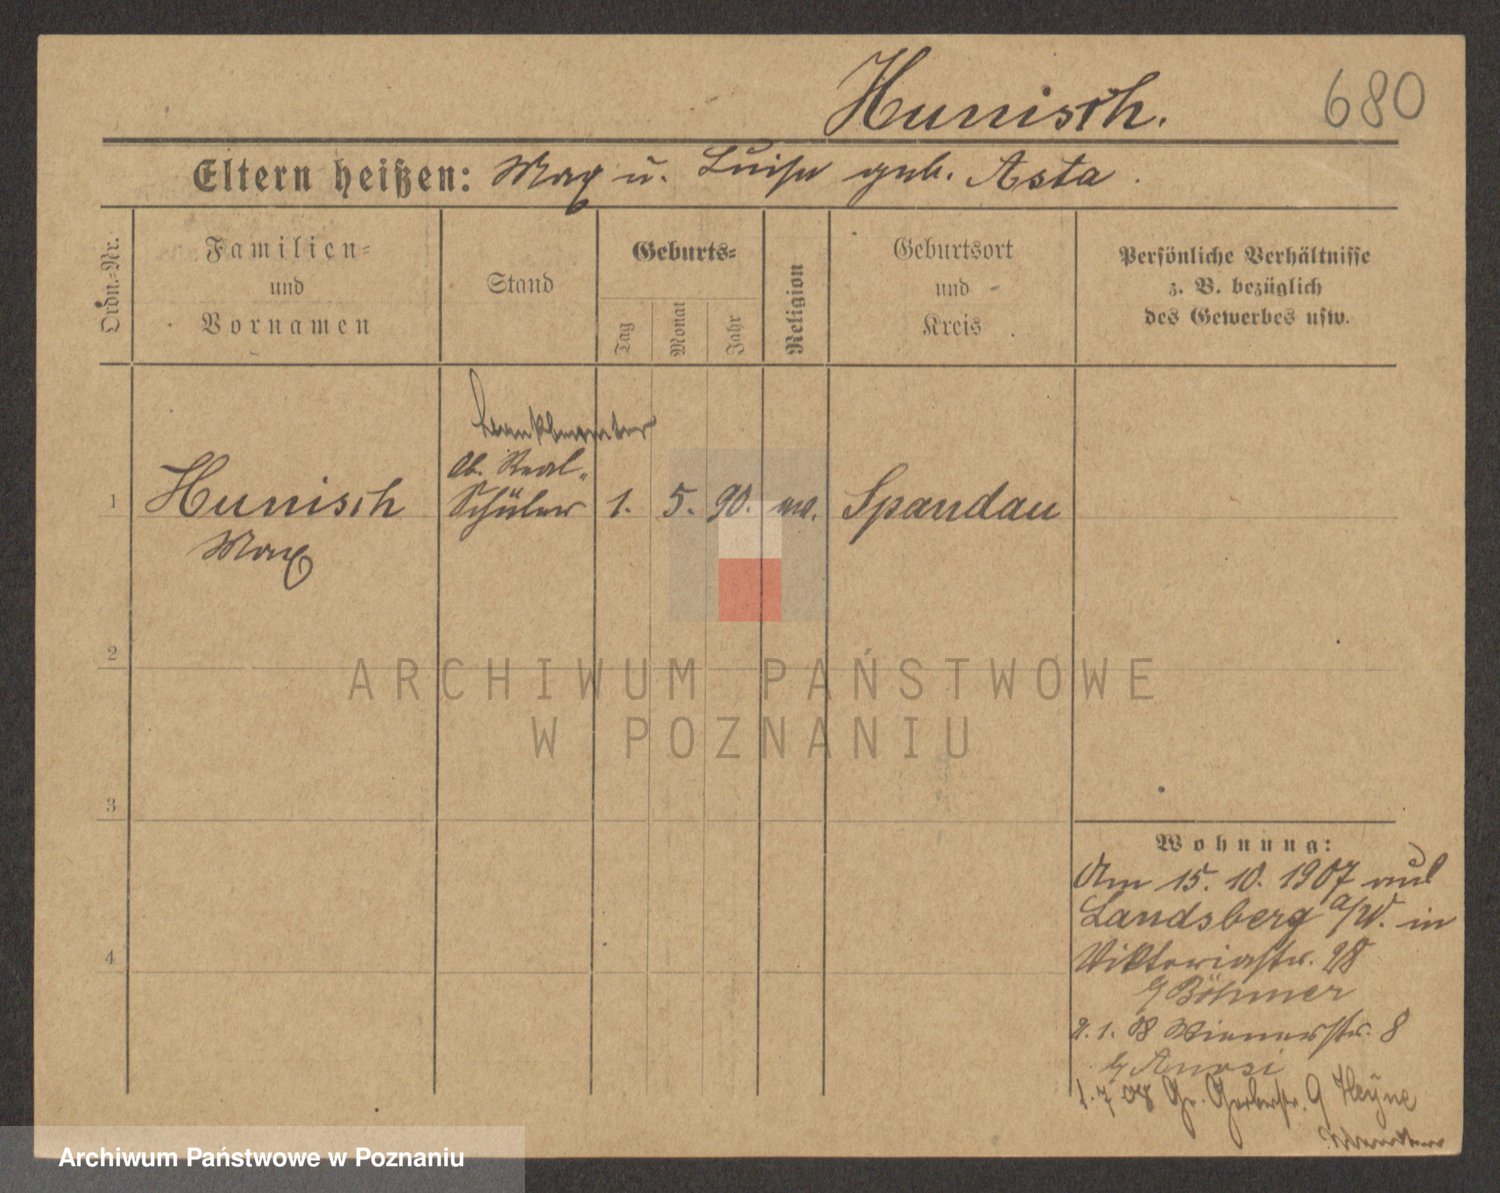 Hunisch.
680
Eltern heißen: Max u. Luise geb. Asta.
Ordn.-Nr.
Familien-
und
Vornamen
Stand
Geburts-
Tag
Monat
Jahr
Religion
Geburtsort
und
Kreis
Persönliche Verhältnisse
z. B. bezüglich
des Gewerbes usw.
Bankbeamter
Ob. Real-
1 Hunisch Schüler 1. 5. 90. ev. Spandau
Max
2
3
4
ARCHIWUM PAŃSTWOWE
W POZNANIU
Wohnung:
Am 15. 10. 1907 aus
Landsberg a/W. in
Viktoriastr. 28
b/ Böhmer
2. 1. 08 Wienerstr. 8
b/
1. 7 08 Gr. Gerberstr. 9 Heyne
Archiwum Państwowe w Poznaniu